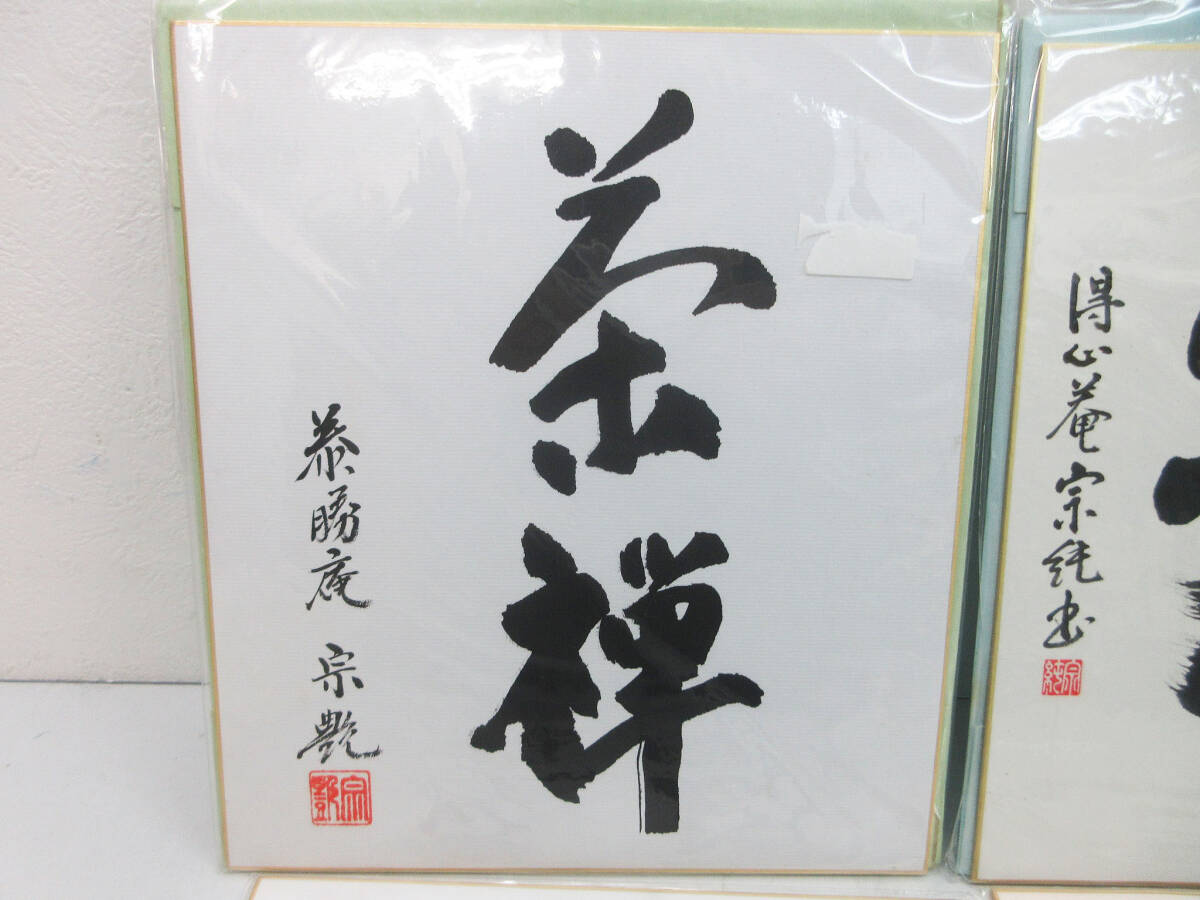 茶禅
泰勝庵 宗艶
宗艶
得心庵 宗純書
宗純